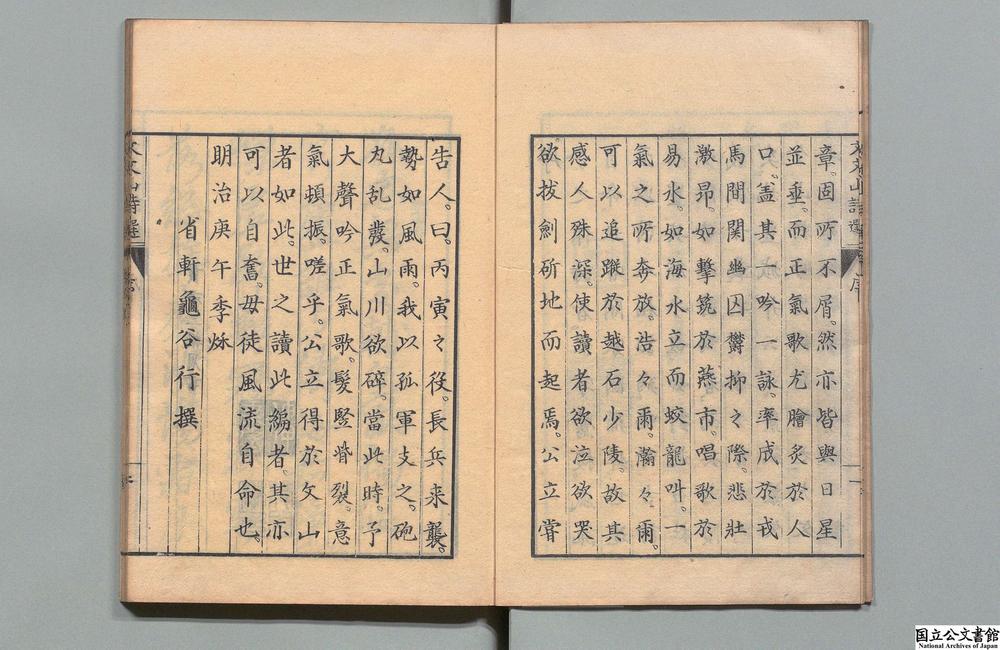 章。固所不屑。然亦皆與日星
並垂。而正氣歌尤膾炙於人
口。盖其一吟一詠。率成於戎
馬間關幽囚欝抑之際。悲壯
激昂。如擊筑於燕市。唱歌於
易水。如海水立而蛟龍叫。一
氣之所奔放。浩々爾。瀚々爾。
可以追蹤於越石少陵。故其
感人殊深。使讀者欲泣欲哭
欲拔劍斫地而起焉。公立嘗
告人。曰。丙寅之役。長兵来襲。
勢如風雨。我以孤軍支之。砲
丸乱發。山川欲碎。當此時。予
大聲吟正氣歌。髮竪眥裂。意
氣頓振。嗟乎。公立得於文山
者如此。世之讀此編者。其亦
可以自奮。毋徒風流自命也。
明治庚午季秌
省軒龜谷行撰
文文山詩選
序
国立公文書館
National Archives of Japan